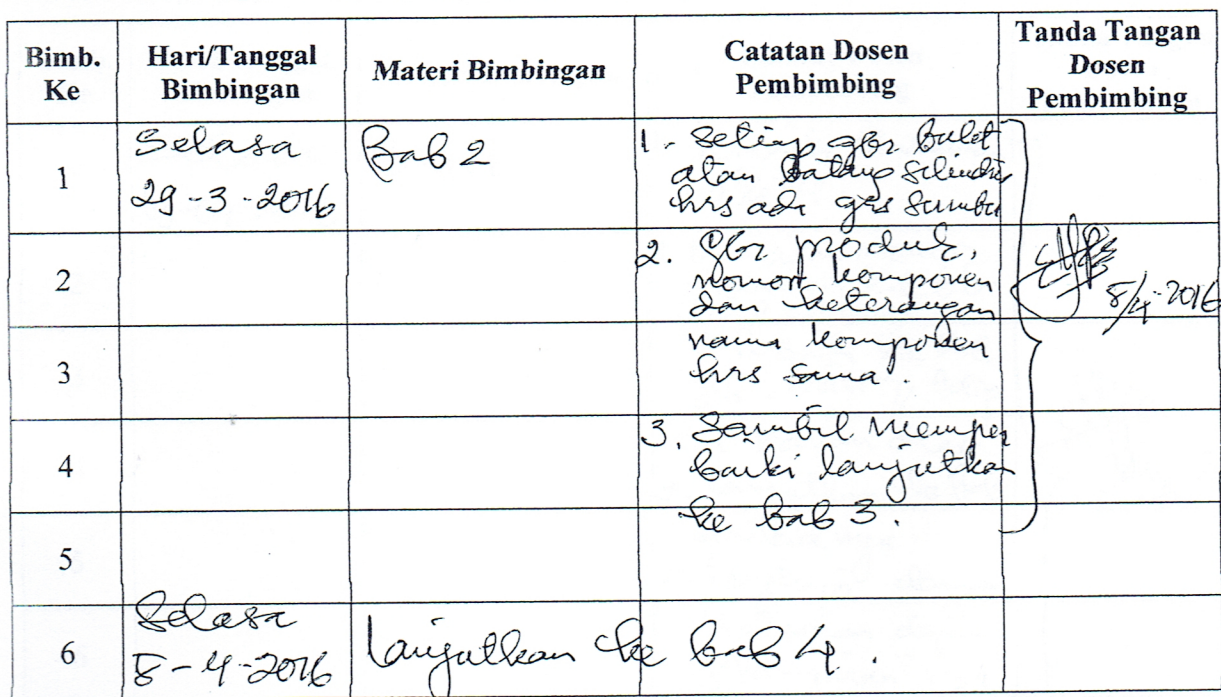 Bimb. Ke
Hari/Tanggal Bimbingan
Materi Bimbingan
Catatan Dosen Pembimbing
Tanda Tangan Dosen Pembimbing
1
Selasa
29-3-2016
Bab 2
1. Setiap gbr bulat
atau batang silindris
hrs ada grs sumbu
2
2. Gbr produk,
nomor komponen
dan keterangan
8/4-2016
3
nama komponen
hrs sama.
4
3. Sambil memper
baiki lanjutkan
ke bab 3.
5
6
Selasa
5-4-2016
lanjutkan ke bab 4.